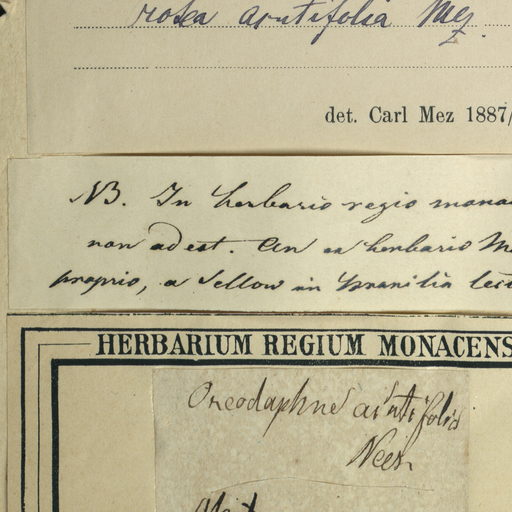 rosea acutifolia Mez.
det. Carl Mez 1887/
NB. In herbario regio mona
non adest. An ex herbario M
proprio, a Sellow in Brasilia lec
HERBARIUM REGIUM MONACENS
Oreodaphne acutifolia
Nees.